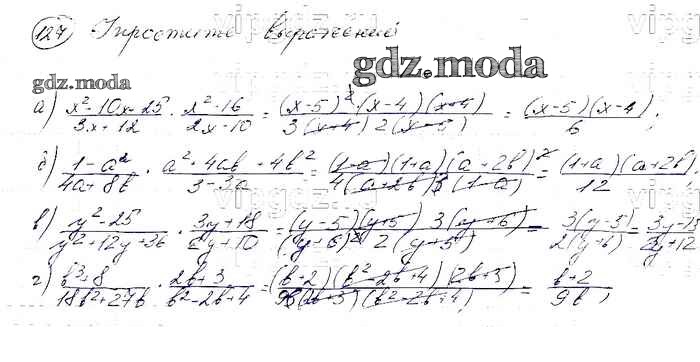 127 Упростите выражения
gdz.moda
gdz.moda
а) (x²-10x+25)/(3x+12) · (x²-16)/(2x-10) = ((x-5)²(x-4)(x+4))/(3(x+4)2(x-5)) = ((x-5)(x-4))/6;
б) (1-a²)/(4a+8b) · (a²+4ab+4b²)/(3-3a) = ((1-a)(1+a)(a+2b)²)/(4(a+2b)3(1-a)) = ((1+a)(a+2b))/12;
в) (y²-25)/(y²+12y+36) · (3y+18)/(2y+10) = ((y-5)(y+5) 3(y+6))/((y+6)² 2(y+5)) = (3(y-5))/(2(y+6)) = (3y-15)/(2y+12)
г) (b³+8)/(18b²+27b) · (2b+3)/(b²-2b+4) = ((b+2)(b²-2b+4)(2b+3))/(9b(2b+3)(b²-2b+4)) = (b+2)/(9b);